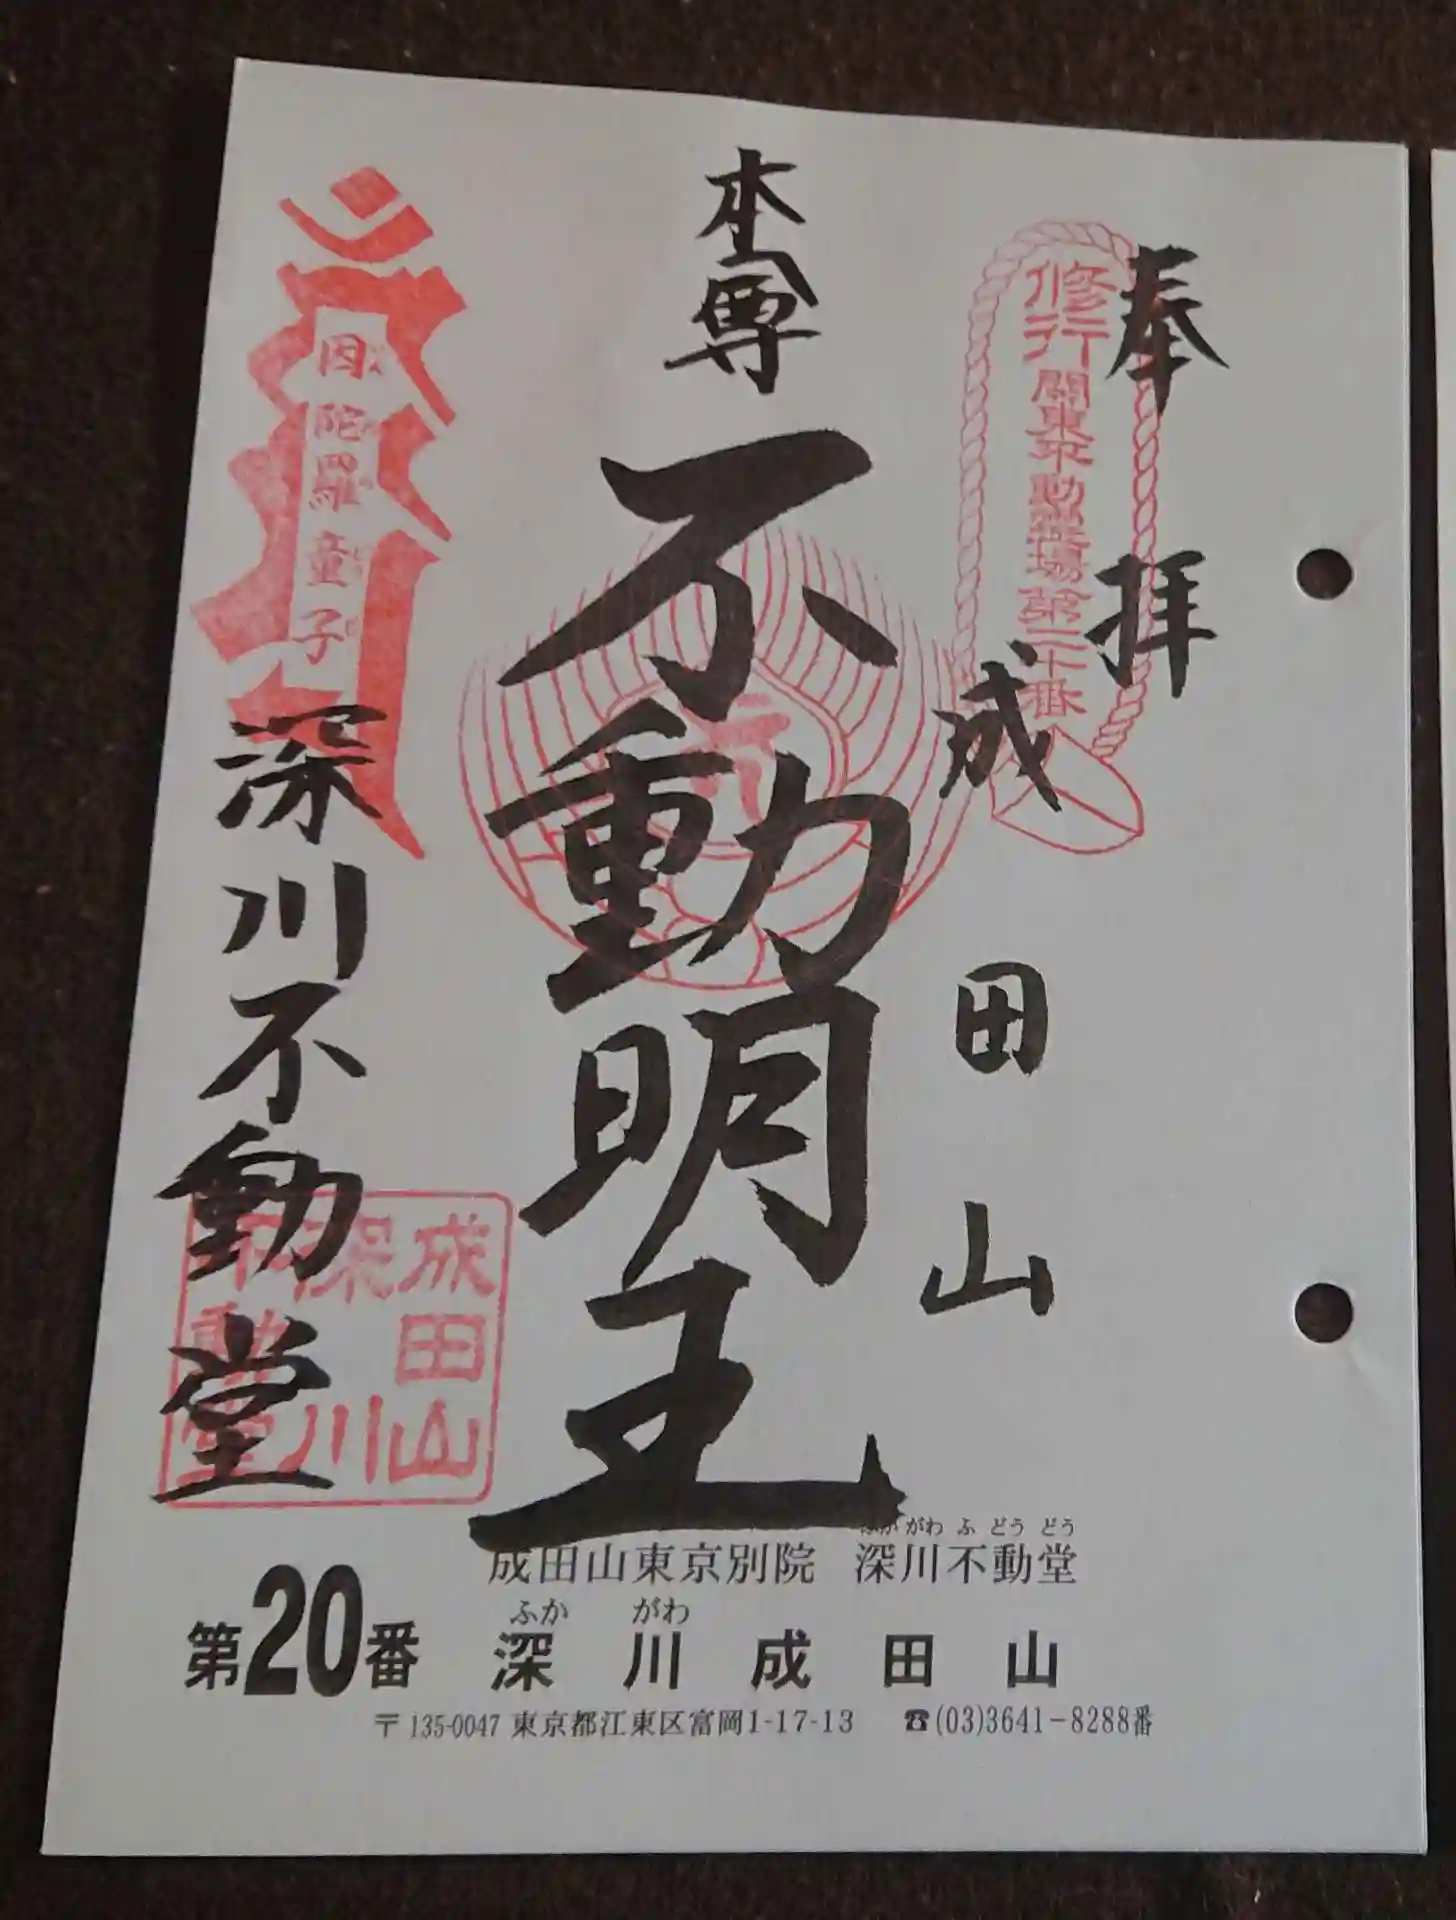 奉拝
修行関東不動霊場第二十番
成田山
本尊
不動明王
因陀羅童子
深川不動堂
成田山
深川
不動堂
ふかがわふどうどう
成田山東京別院 深川不動堂
ふかがわ
第20番 深川成田山
〒135-0047 東京都江東区富岡1-17-13 ☎(03)3641-8288番